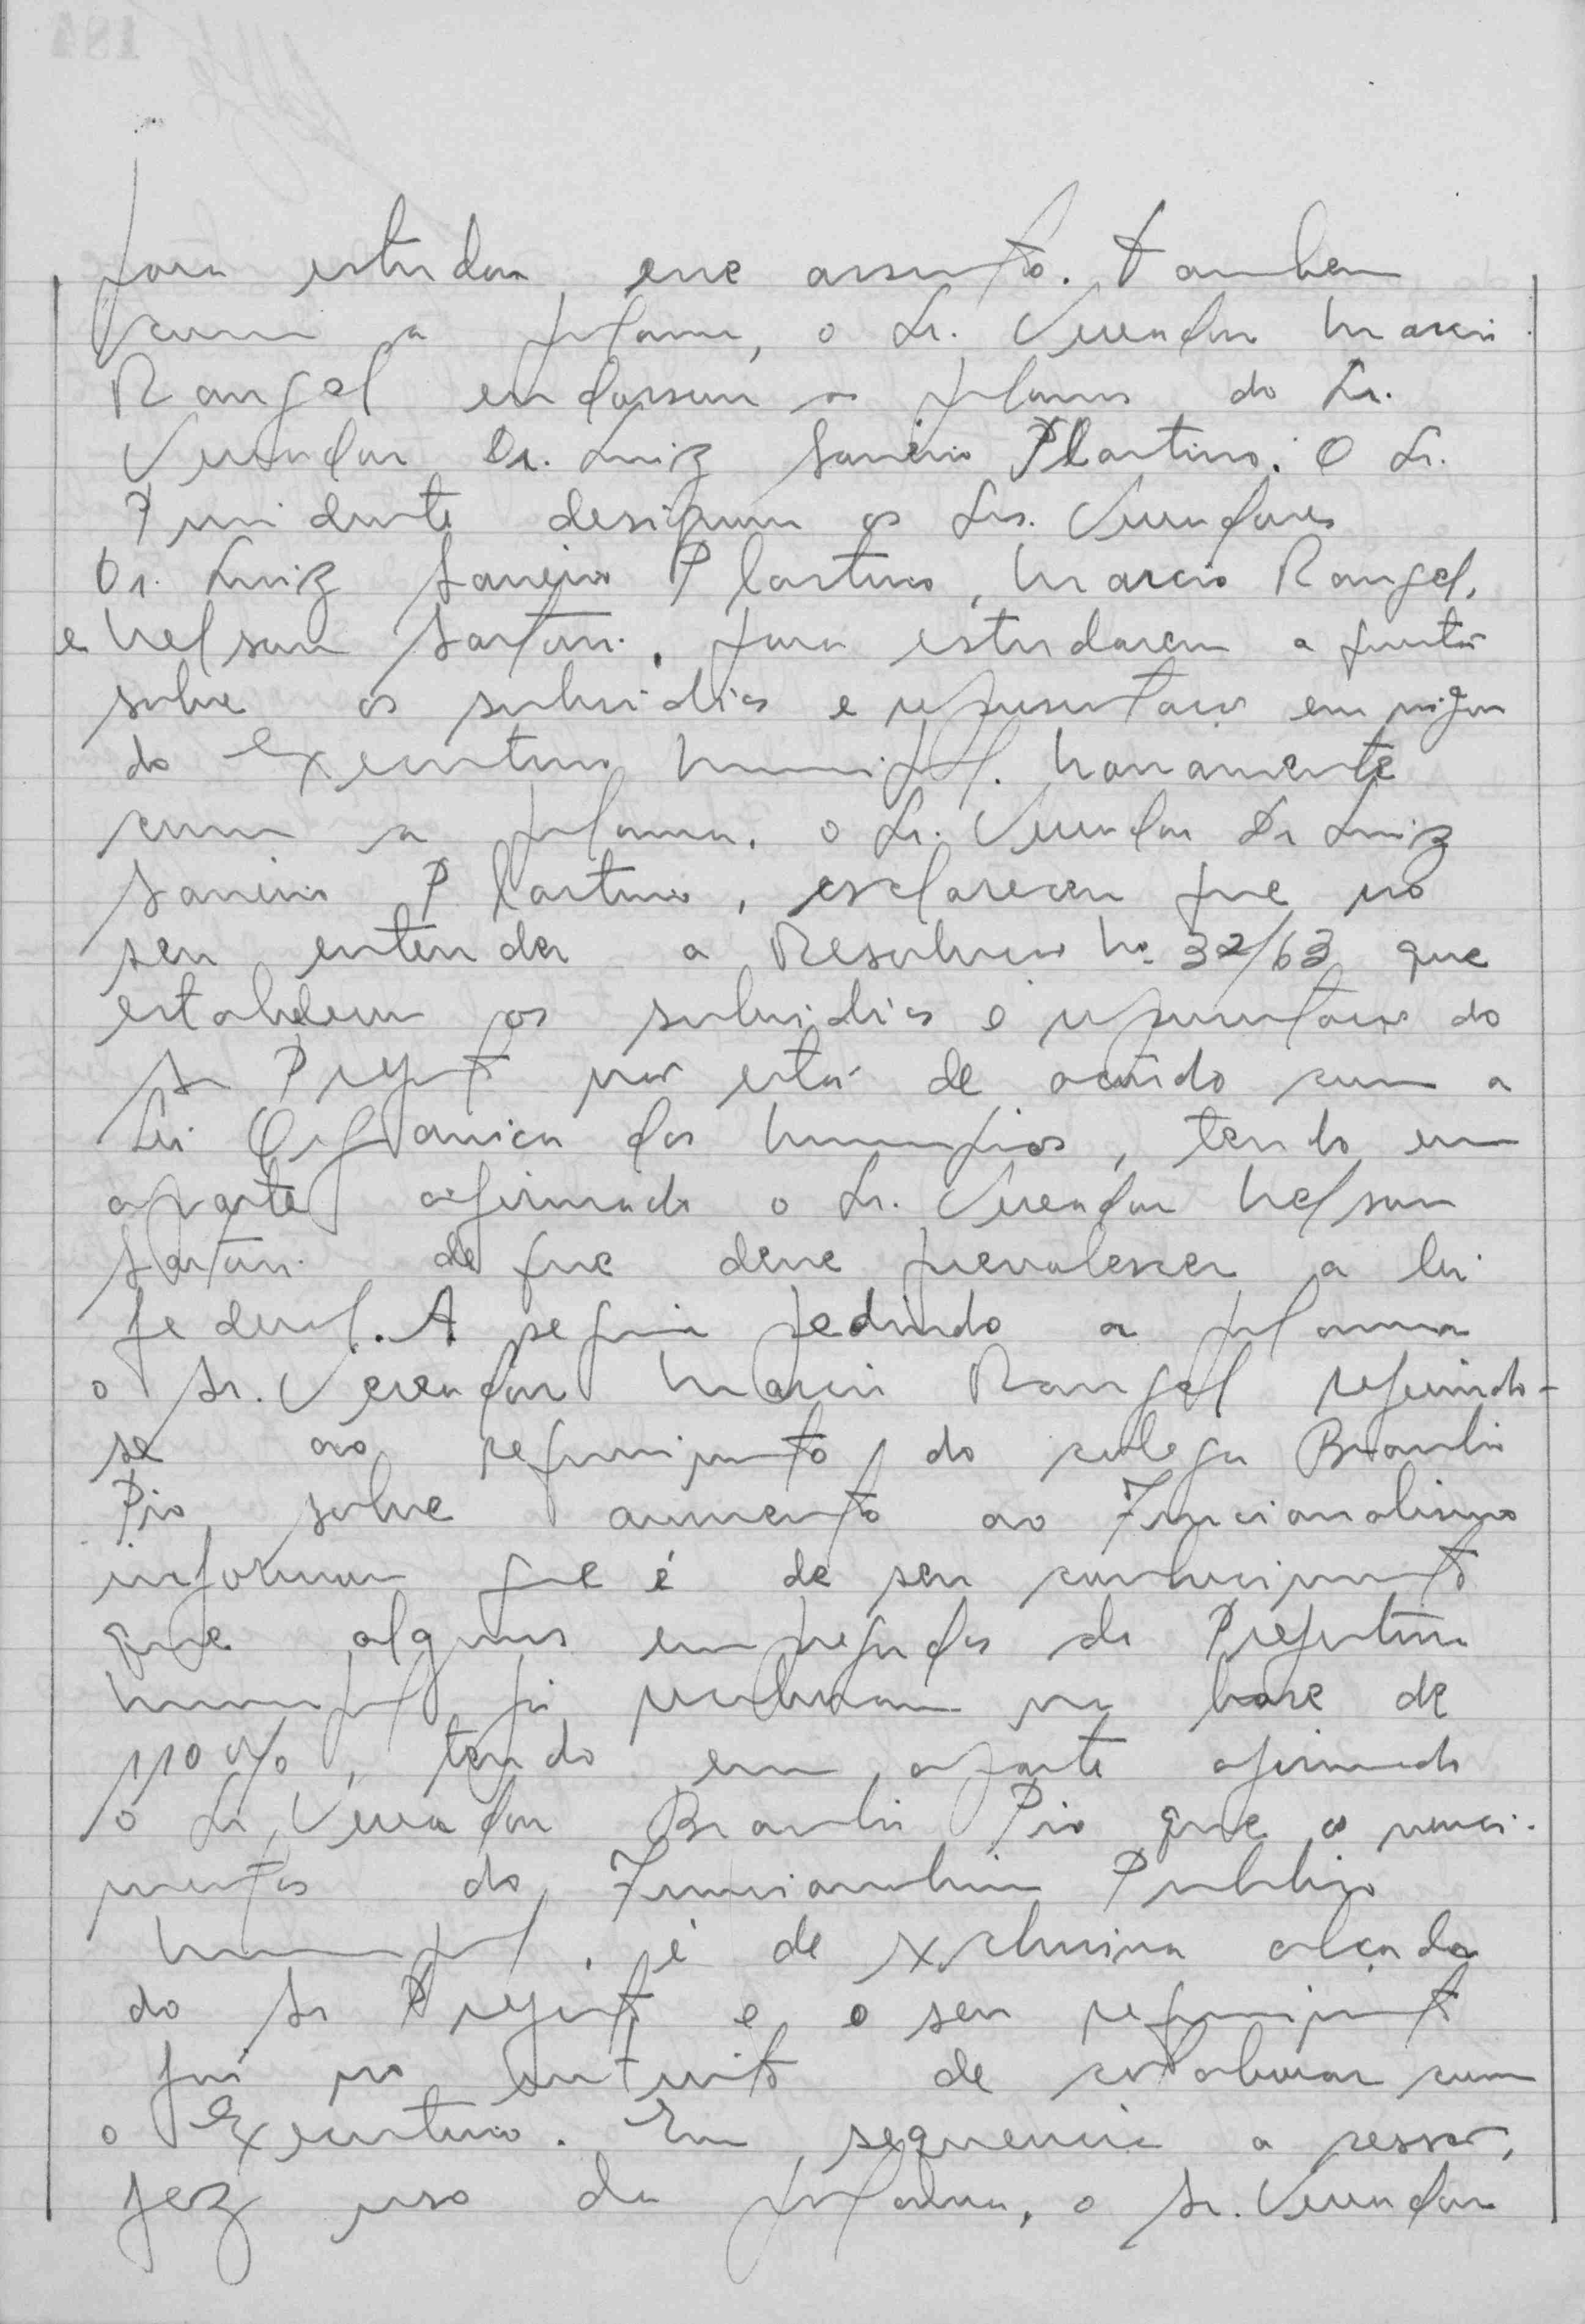 para estudar esse assunto. Também
com a palavra, o Sr. Vereador Marcio
Rangel endossou as palavras do Sr.
Vereador Dr. Luiz Janeiro Plastino. O Sr.
Presidente designou os Srs. Vereadores
Dr. Luiz Janeiro Plastino, Marcio Rangel,
e Nelson Sartori, para estudarem a questão
sobre os subsidios e representação em vigor
do Executivo Municipal. Novamente
com a palavra, o Sr. Vereador Dr Luiz
Janeiro Plastino, esclareceu que no
seu entender a Resolução No. 32/63 que
estabeleceu os subsidios e representação do
Sr Prefeito não está de acôrdo com a
Lei Organica dos Municipios, tendo em
aparte afirmado o Sr. Vereador Nelson
Sartori de que deve prevalescer a lei
federal. A seguir pedindo a palavra
o Sr. Vereador Marcio Rangel referindo-
se ao requerimento do colega Braulio
Pio sobre aumento ao Funcionalismo
informou que é de seu conhecimento
que alguns empregados da Prefeitura
Municipal já receberam na base de
110%, tendo em aparte afirmado
o Sr Vereador Braulio Pio que os venci-
mentos do Funcionalismo Publico
Municipal, é de exclusiva alçada
do Sr Prefeito e o seu requerimento
foi no intuito de colaborar com
o Executivo. Em sequencia a sessão,
fez uso da palavra, o Sr. Vereador